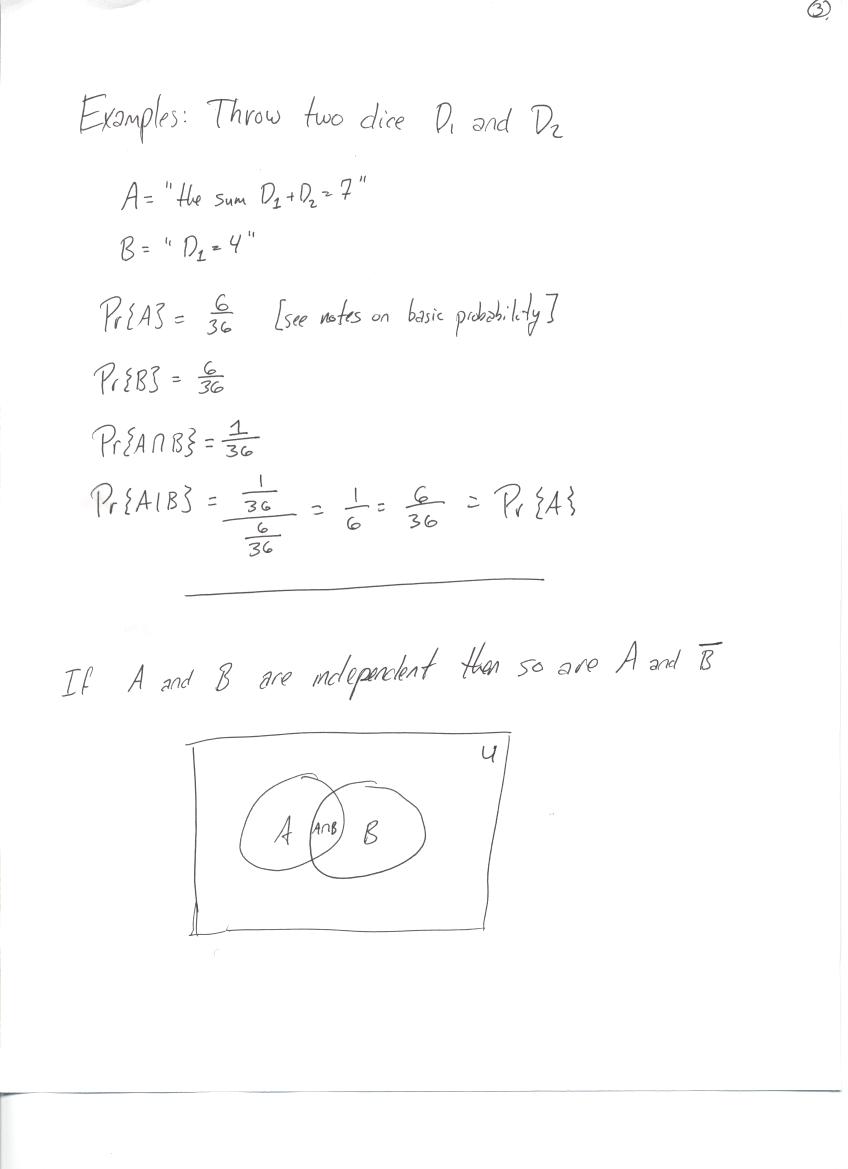 3
Examples: Throw two dice D₁ and D₂
A = "the sum D₁ + D₂ = 7"
B = "D₁ = 4"
Pr{A} = 6/36 [see notes on basic probability]
Pr{B} = 6/36
Pr{A∩B} = 1/36
Pr{A|B} = (1/36)/(6/36) = 1/6 = 6/36 = Pr{A}
If A and B are independent then so are A and B̅
U
A A∩B B